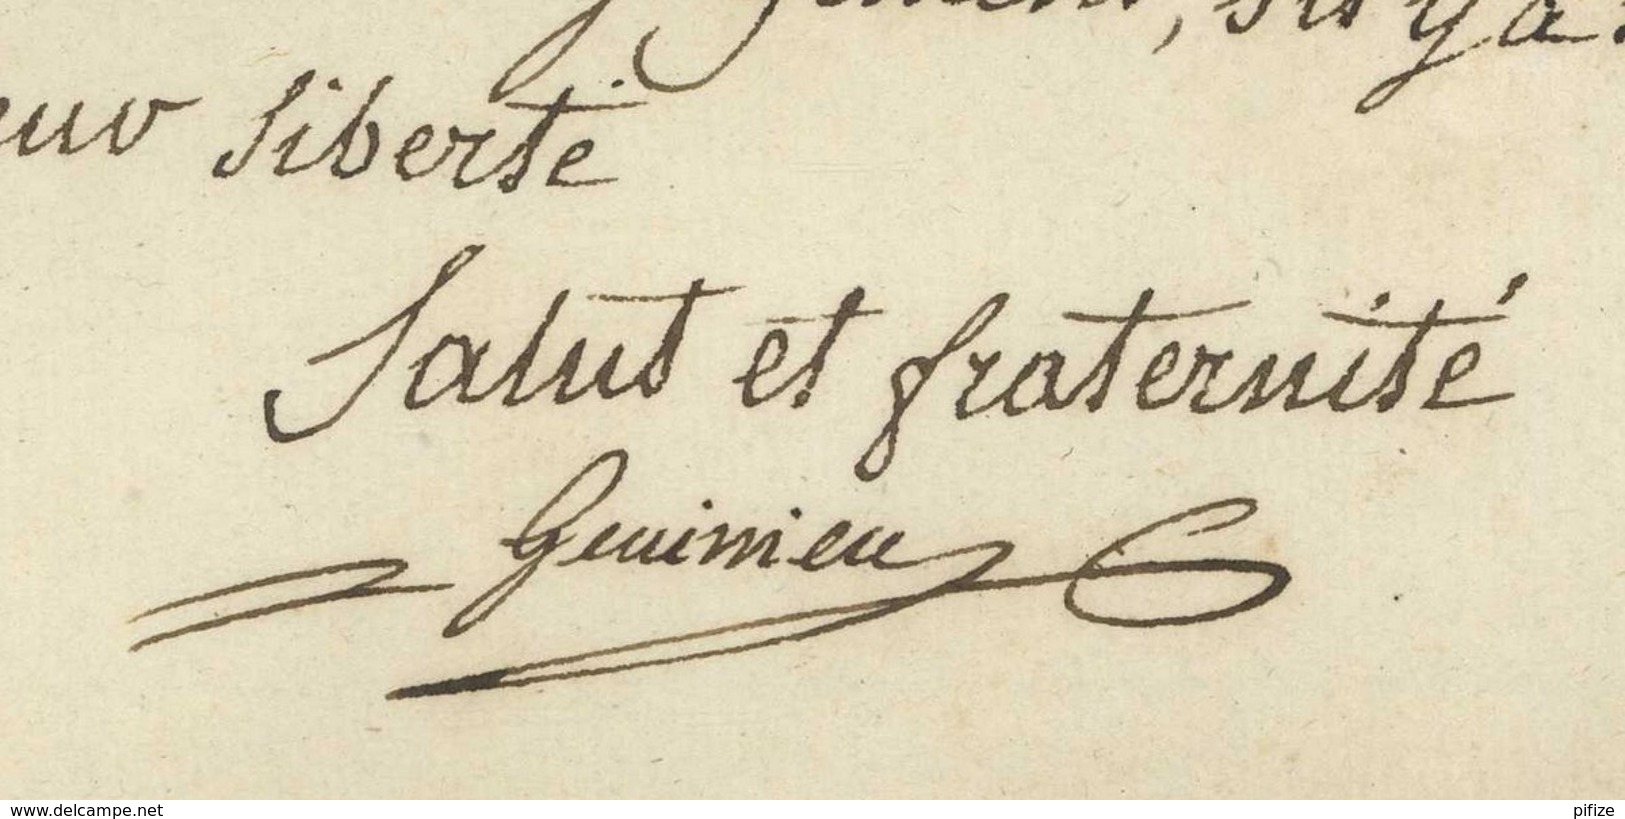 s'il y a
liberté
Salut et fraternité
Guinieu
www.delcampe.net
pifize